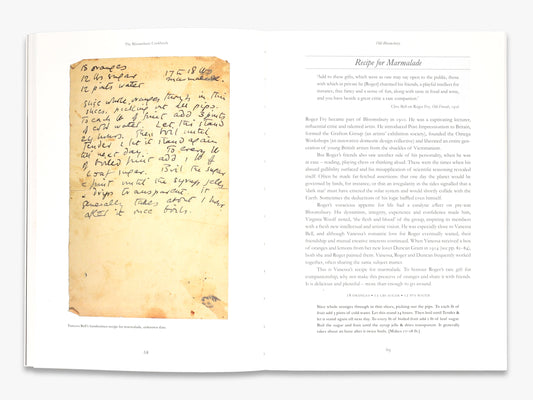 The Bloomsbury Cookbook
18 oranges
12 lbs sugar
12 pints water
17 to 18 lbs
marmalade.
Slice whole oranges through in thin
slices, picking out the pips.
To each lb of fruit add 3 pints
of cold water. Let this stand
24 hours. Then boil until
tender & let it stand again
till next day. To every lb
of boiled fruit add 1 lb of
loaf sugar. Boil the sugar
& fruit until the syrup jells
& drops transparent. It
generally takes about 1 hour
after it once boils.
Vanessa Bell's handwritten recipe for marmalade,
Old Bloomsbury
Recipe for Marmalade
'Add to these gifts, which were in one way up open to the public, those
with which in private he [Roger] charmed his friends, a playful intellect for
instance, free fancy and a sense of fun, along with taste in food and wine,
and you have beside a great critic a rare companion.'
Clive Bell on Roger Fry, Old Friends, 1956
Roger Fry became part of Bloomsbury in 1910. He was a captivating lecturer,
influential critic and talented artist. He introduced Post-Impressionism to Britain,
formed the Grafton Group (an artists' exhibition society), founded the Omega
Workshops (an innovative domestic design collective) and liberated an entire gen-
eration of young British artists from the shackles of Victorianism.
But Roger's friends also saw another side of his personality, when he was
in situ – reading, playing chess or thinking aloud. These were the times when his
absurd gullibility surfaced and his misapplication of scientific reasoning revealed
itself. Often he made far-fetched assertions: that one day the planet would be
governed by birds, for instance, or that an irregularity in the tides signalled that a
'dark star' must have entered the solar system and would shortly collide with the
Earth. Sometimes the deductions of his rogue baffled even himself.
Roger's voracious appetite for life had a catalyst effect on pre-war
Bloomsbury. His dynamism, integrity, experience and confidence made him,
Virginia Woolf noted, 'the flesh and blood' of the group, inspiring its members
with a fresh new intellectual and artistic vision. He was especially close to Vanessa
Bell, and although Vanessa's romantic love for Roger eventually waned, their
friendship and mutual creative interests continued. When Vanessa received a box
of oranges and lemons from her new lover Duncan Grant in 1914 (see pp. 82–84),
both she and Roger painted them. Vanessa, Roger and Duncan frequently worked
together, often sharing the same subject matter.
This is Vanessa's recipe for marmalade. To honour Roger's rare gift for
companionship, why not make this preserve of oranges and share it with friends.
It is delicious and plentiful – more than enough to go around.
18 oranges • 12 lbs sugar • 12 pts water
Slice whole oranges through in thin slices, picking out the pips. To each lb of
fruit add 3 pints of cold water. Let this stand 24 hours. Then boil until tender &
let it stand again till next day. To every lb of boiled fruit add 1 lb of loaf sugar.
Boil the sugar and fruit until the syrup jells & drips transparent. It generally
takes about an hour after it twice boils. [Makes 17–18 lb.]